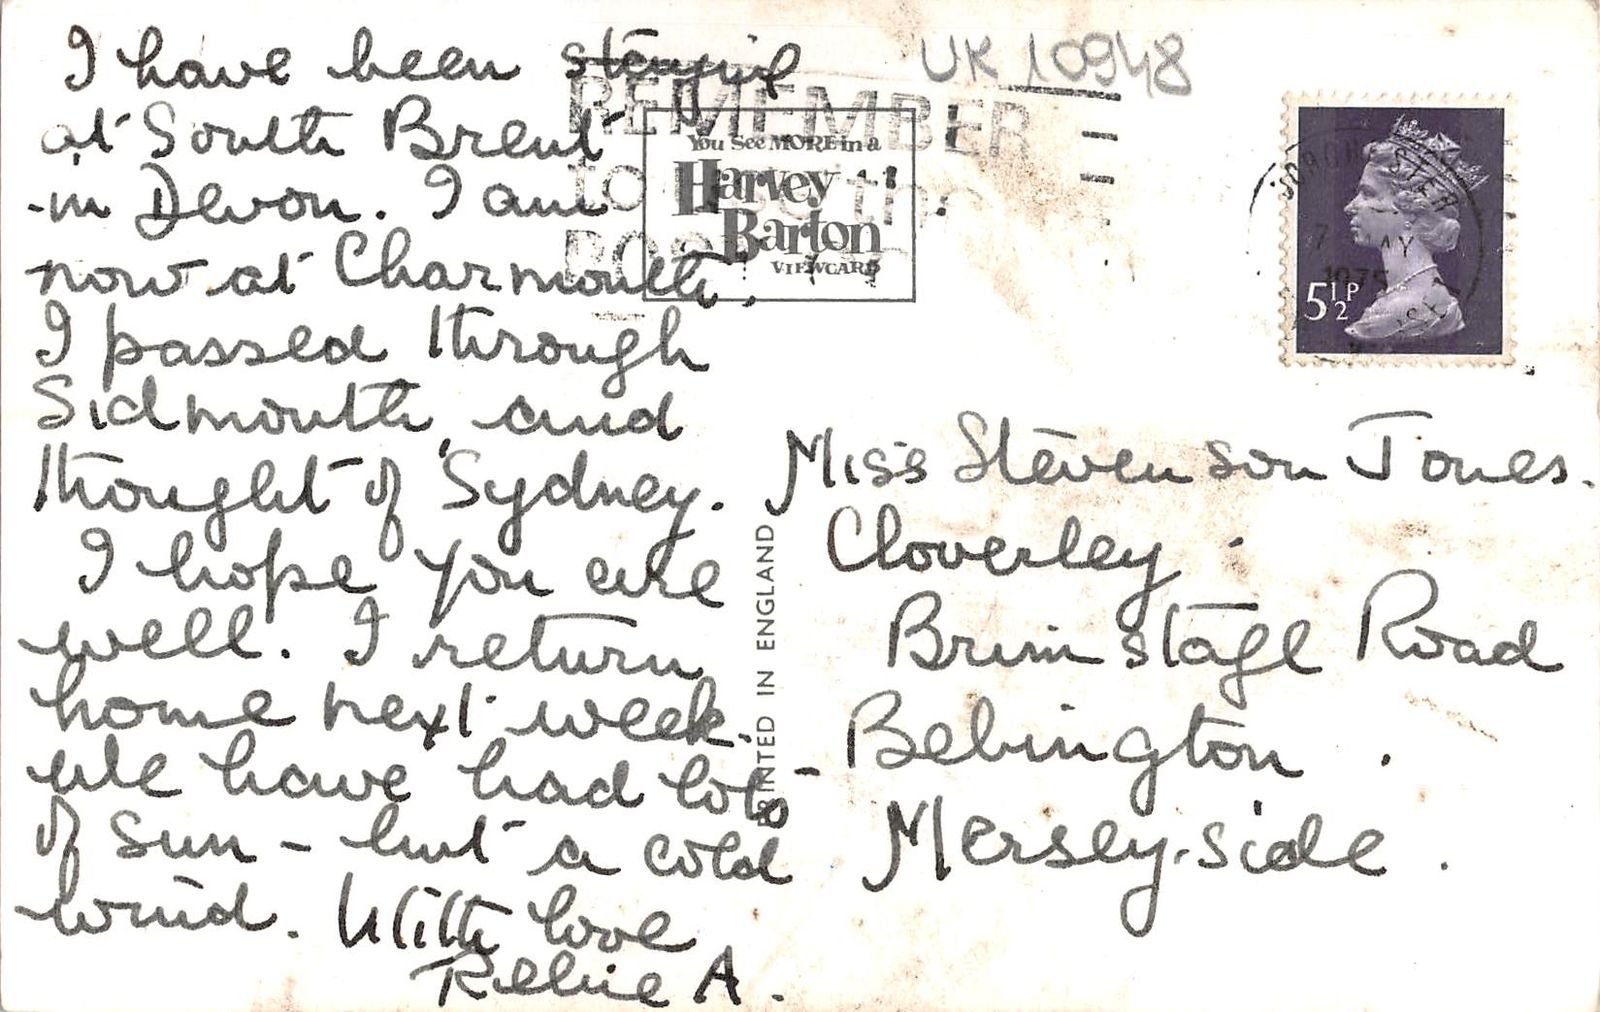 I have been staying
at South Brent
in Devon. I am
now at Charmouth.
I passed through
Sidmouth, and
thought of Sydney.
I hope you are
well. I return
home next week.
We have had lots
of sun - but a cold
wind. With love
A.
UK 10948
REMEMBER
to use the
You See MORE in a
Harvey
Barton
VIEWCARD
PRINTED IN ENGLAND
7 MAY
1975
5½P
Miss Stevenson Jones.
Cloverley
Brimstage Road
Bebington
Mersey-side.